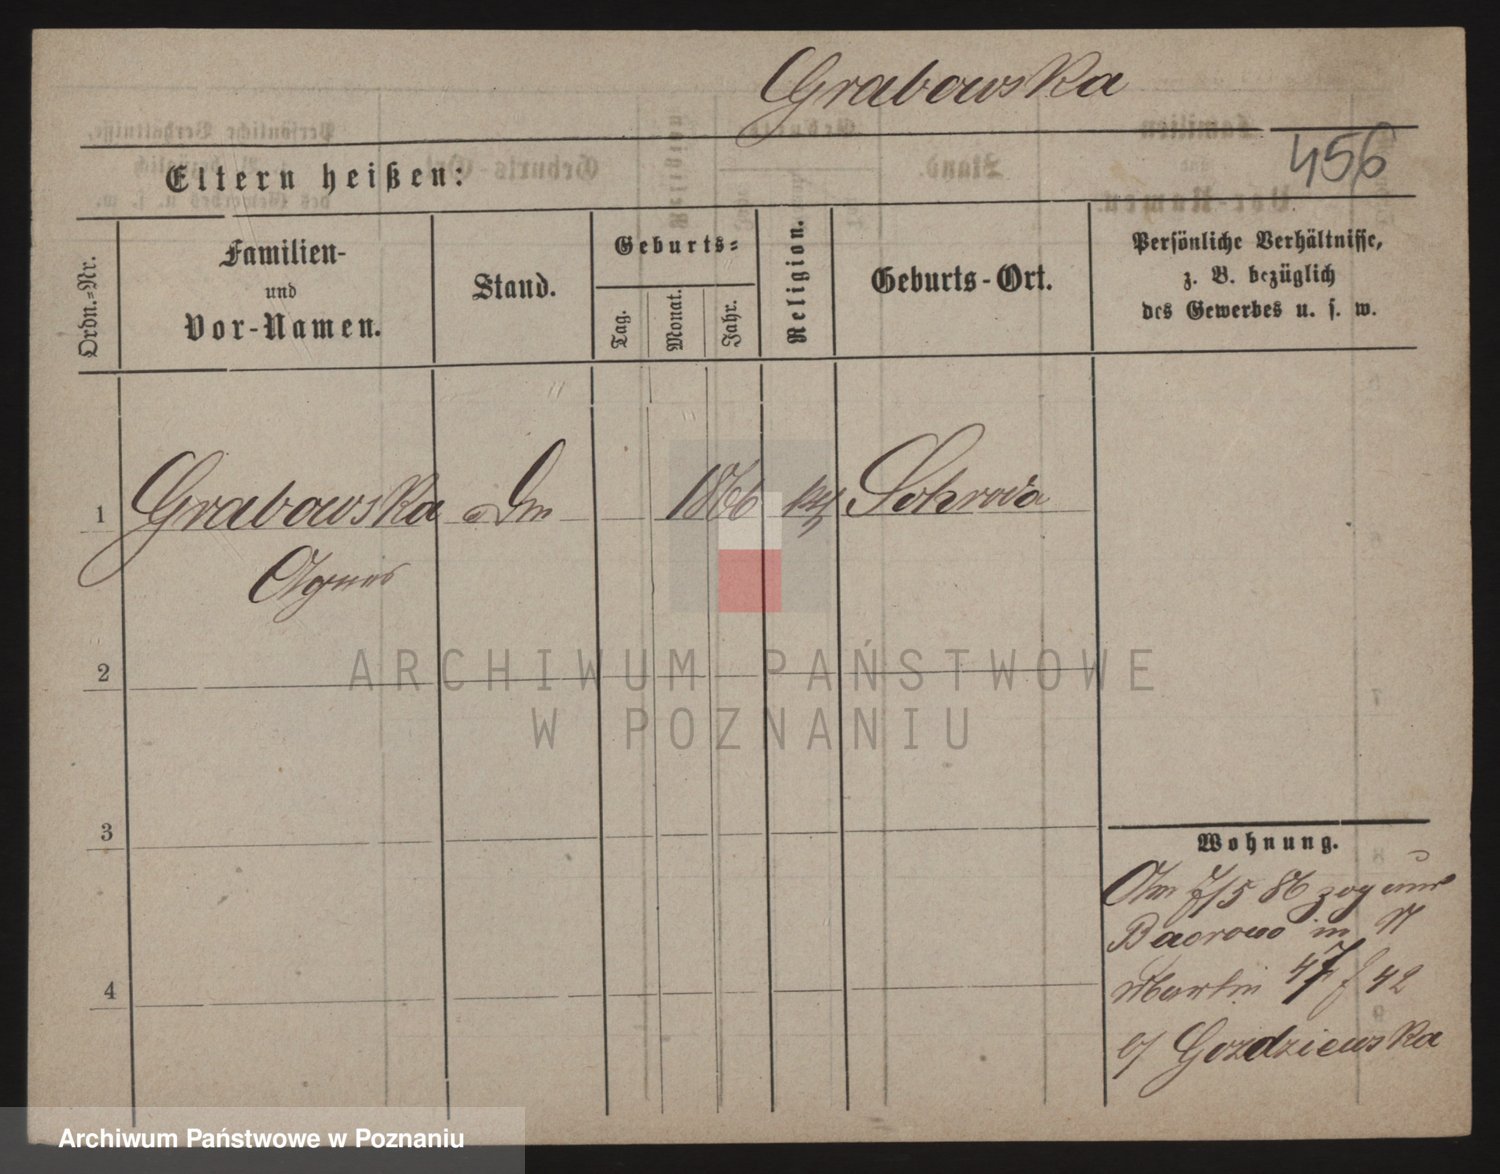 Grabowska
456
Eltern heißen:
Ordn.-Nr.
Familien-
und
Vor-Namen.
Stand.
Geburts-
Tag.
Monat.
Jahr.
Religion.
Geburts-Ort.
Persönliche Verhältnisse,
z. B. bezüglich
des Gewerbes u. s. w.
1 Grabowska 1866
Agnes
2
ARCHIWUM PAŃSTWOWE
W POZNANIU
3
Wohnung.
Am 7/5 86 zog aus
in St
4
Martin 47 f 42
b/ Gozdziewska
Archiwum Państwowe w Poznaniu